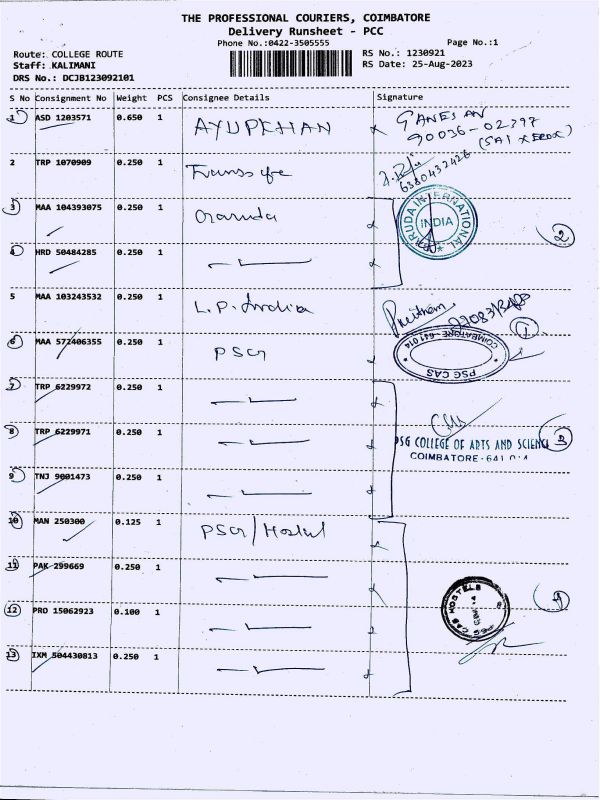 THE PROFESSIONAL COURIERS, COIMBATORE
Delivery Runsheet - PCC
Phone No.:0422-3505555
Page No.:1
Route: COLLEGE ROUTE
RS No.: 1230921
Staff: KALIMANI
RS Date: 25-Aug-2023
DRS No.: DCJB123092101
S No Consignment No Weight PCS Consignee Details Signature
1 ASD 1203571 0.650 1 AYUPKHAN GANESAN
90036-02397
(SAI XEROX)
2 TRP 1070909 0.250 1
6380432426
3 MAA 104393075 0.250 1
GARUDA INTERNATIONAL
INDIA
2
4 HRD 50484285 0.250 1
5 MAA 103243532 0.250 1 L.P. India
6 MAA 572406355 0.250 1 PSG
1
COIMBATORE - 641 014
PSG CAS
7 TRP 6229972 0.250 1
8 TRP 6229971 0.250 1
PSG COLLEGE OF ARTS AND SCIENCE
COIMBATORE - 641 014
3
9 TNJ 9001473 0.250 1
10 MAN 250300 0.125 1 PSG/Hostel
11 PAK 299669 0.250 1
12 PRO 15062923 0.100 1
CAS HOSTELS
13 IXM 504430813 0.250 1